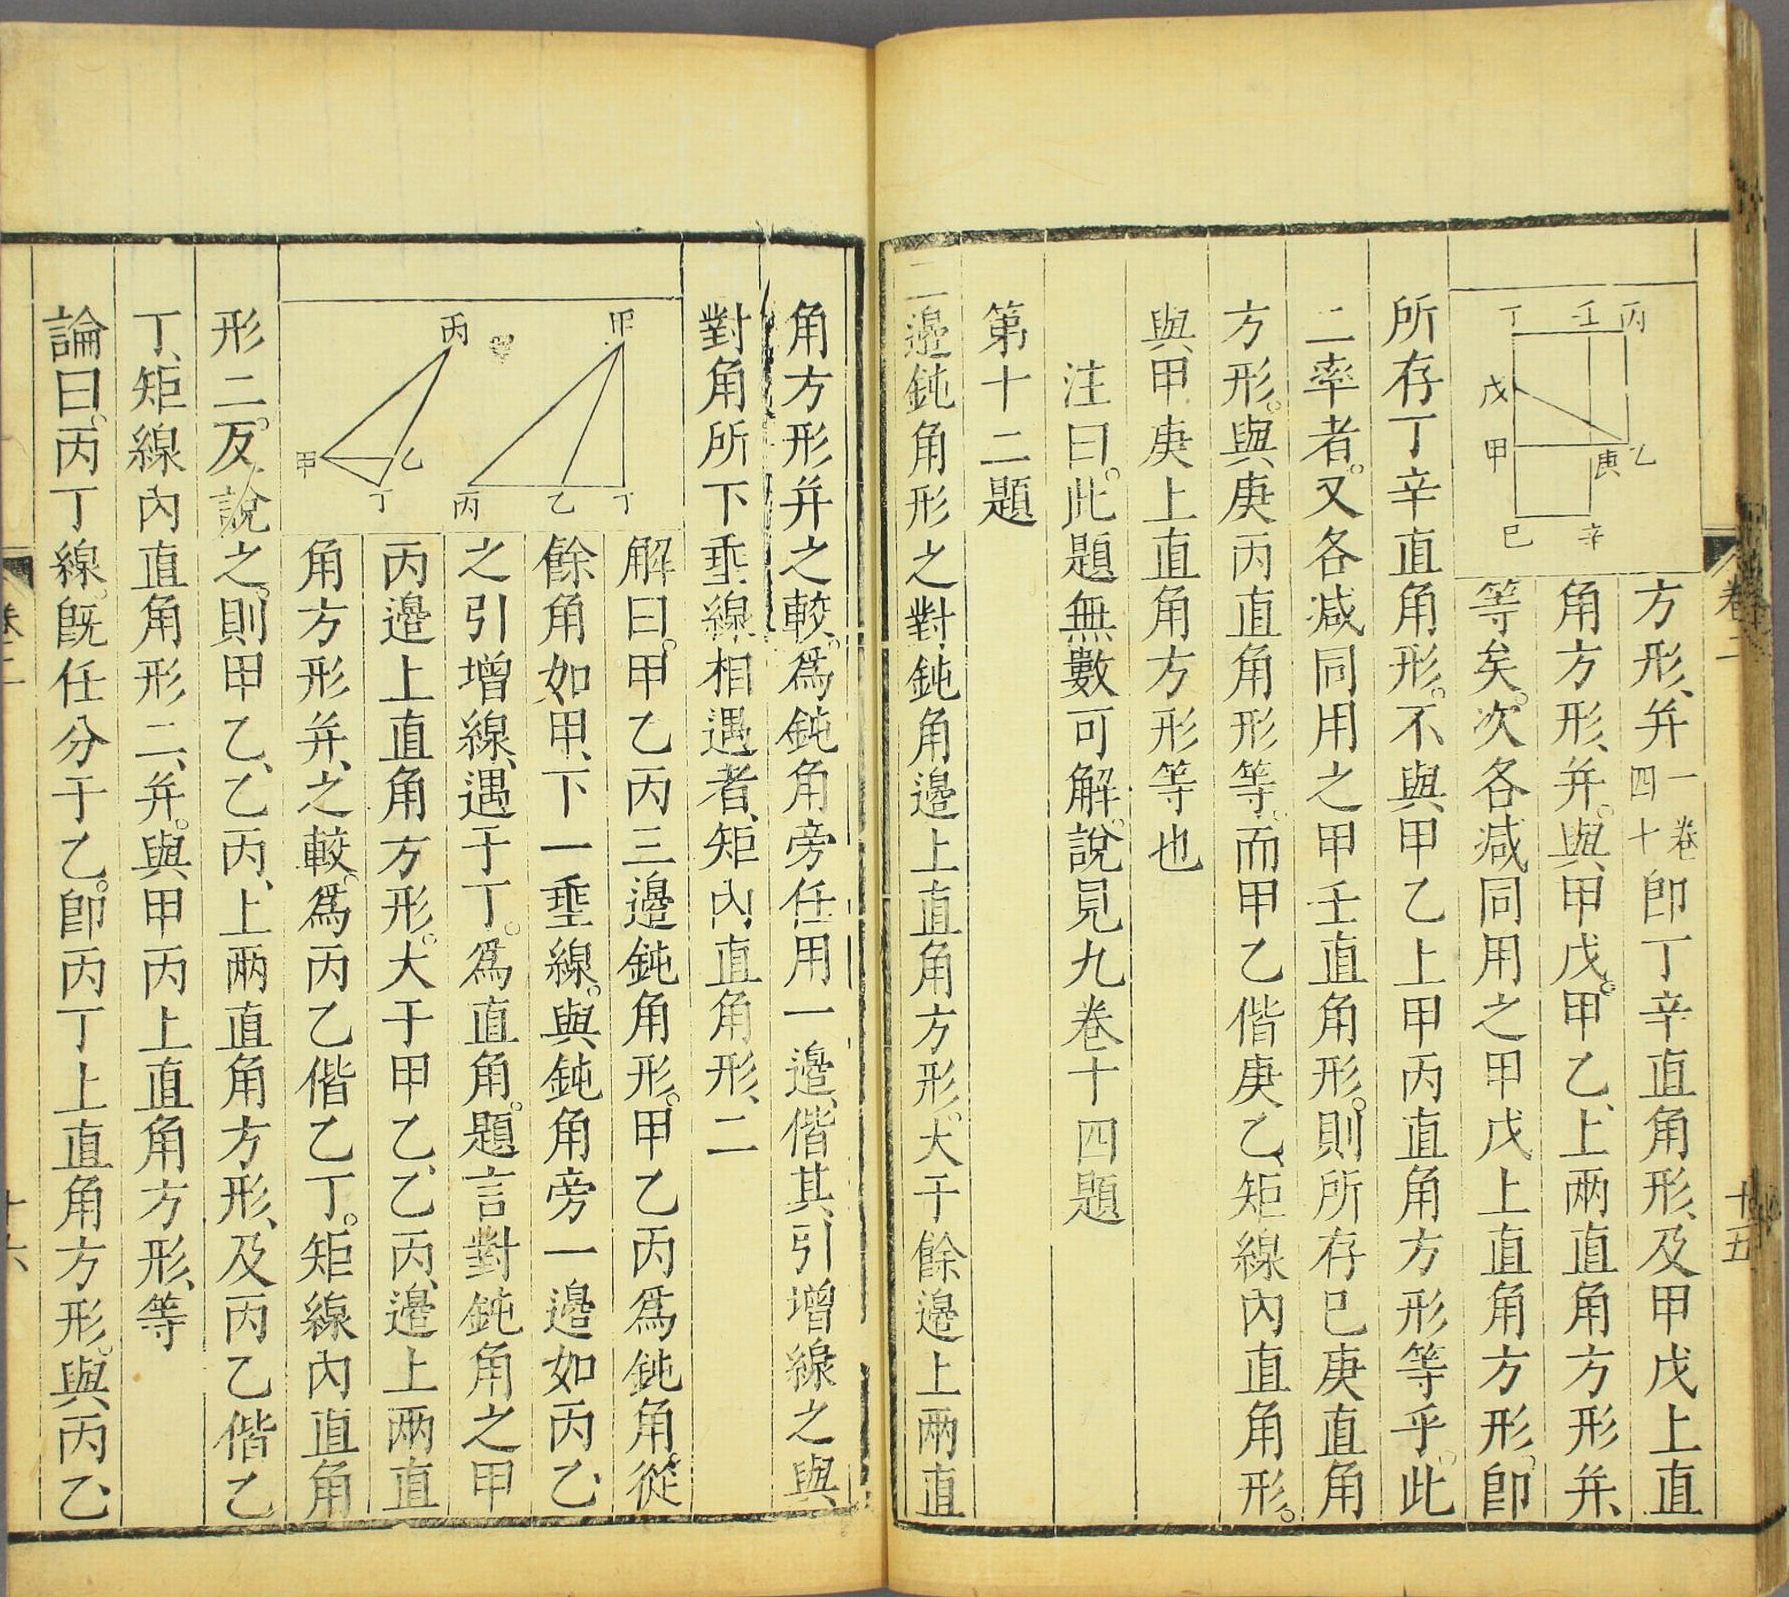 丙
壬
丁
戊
乙
甲
庚
辛
巳
方形、并一卷四十卽丁辛直角形、及甲戊上直
角方形、并。與甲戊。甲乙、上兩直角方形并、
等矣。次各減同用之甲戊上直角方形。卽
所存丁辛直角形。不與甲乙上甲丙直角方形等乎。此
二率者。又各減同用之甲壬直角形。則所存巳庚直角
方形。與庚丙直角形等。而甲乙偕庚乙、矩線內直角形。
與甲庚上直角方形等也
注曰。此題無數可解。說見九卷十四題
第十二題
三邊鈍角形之對鈍角邊上直角方形。大于餘邊上兩直
卷二
十五
角方形并之較。爲鈍角旁任用一邊、偕其引增線之與
對角所下垂線相遇者、矩內直角形、二
甲
丁
乙
丙
丙
乙
甲
丁
解曰。甲乙丙三邊鈍角形。甲乙丙爲鈍角。從
餘角如甲、下一垂線。與鈍角旁一邊如丙乙、
之引增線、遇于丁。爲直角。題言對鈍角之甲
丙邊上直角方形。大于甲乙、乙丙、邊上兩直
角方形并、之較。爲丙乙偕乙丁。矩線內直角
形二。反說之。則甲乙、乙丙、上兩直角方形、及丙乙偕乙
丁、矩線內直角形二、并。與甲丙上直角方形、等
論曰。丙丁線。旣任分于乙。卽丙丁上直角方形。與丙乙、
卷二
十六